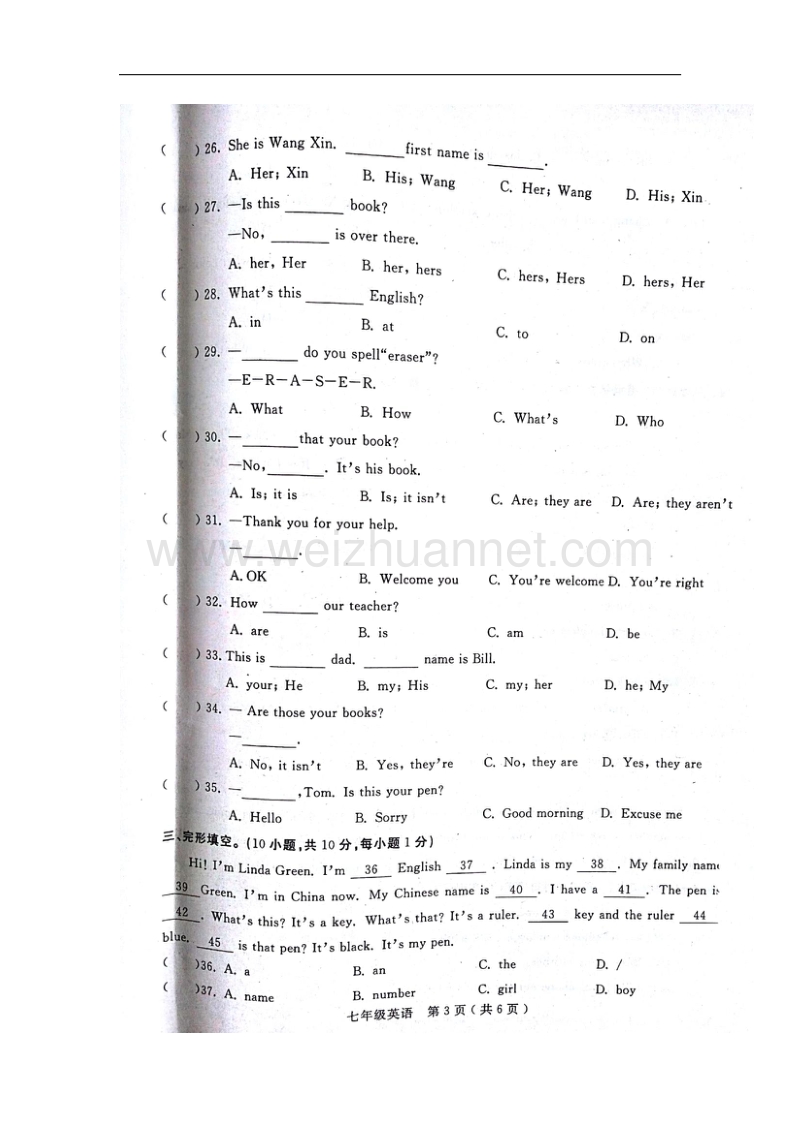 ( )26. She is Wang Xin. ______first name is ______.
A. Her; Xin B. His; Wang C. Her; Wang D. His; Xin
( )27. —Is this ______ book?
—No, ______ is over there.
A. her, Her B. her, hers C. hers, Hers D. hers, Her
( )28. What's this ______ English?
A. in B. at C. to D. on
( )29. —______ do you spell“eraser”?
—E－R－A－S－E－R.
A. What B. How C. What's D. Who
( )30. —______that your book?
—No,______. It's his book.
A. Is; it is B. Is; it isn't C. Are; they are D. Are; they aren't
( )31. —Thank you for your help.
—______.
www.weizhuannet.com
A. OK B. Welcome you C. You're welcome D. You're right
( )32. How ______ our teacher?
A. are B. is C. am D. be
( )33. This is ______ dad. ______ name is Bill.
A. your; He B. my; His C. my; her D. he; My
( )34. — Are those your books?
—______.
A. No, it isn't B. Yes, they're C. No, they are D. Yes, they are
( )35. —______,Tom. Is this your pen?
A. Hello B. Sorry C. Good morning D. Excuse me
三、完形填空。(10小题,共10分,每小题1分)
Hi! I'm Linda Green. I'm 36 English 37 . Linda is my 38 . My family name
39 Green. I'm in China now. My Chinese name is 40 . I have a 41 . The pen is
42 . What's this? It's a key. What's that? It's a ruler. 43 key and the ruler 44
blue. 45 is that pen? It's black. It's my pen.
( )36. A. a B. an C. the D. /
( )37. A. name B. number C. girl D. boy
七年级英语 第3页(共6页)